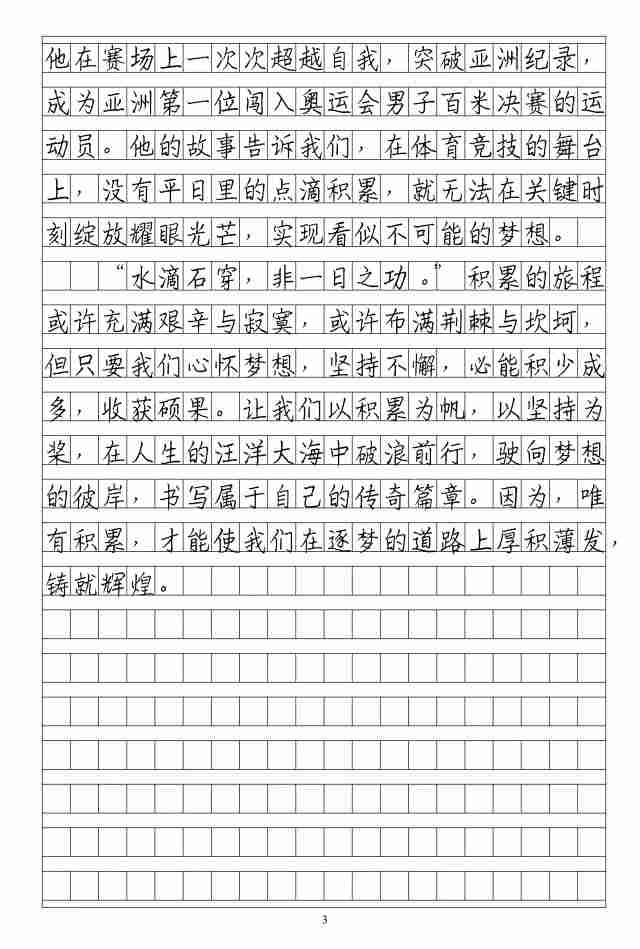 他在赛场上一次次超越自我，突破亚洲纪录，
成为亚洲第一位闯入奥运会男子百米决赛的运
动员。他的故事告诉我们，在体育竞技的舞台
上，没有平日里的点滴积累，就无法在关键时
刻绽放耀眼光芒，实现看似不可能的梦想。
“水滴石穿，非一日之功。”积累的旅程
或许充满艰辛与寂寞，或许布满荆棘与坎坷，
但只要我们心怀梦想，坚持不懈，必能积少成
多，收获硕果。让我们以积累为帆，以坚持为
桨，在人生的汪洋大海中破浪前行，驶向梦想
的彼岸，书写属于自己的传奇篇章。因为，唯
有积累，才能使我们在逐梦的道路上厚积薄发，
铸就辉煌。
3